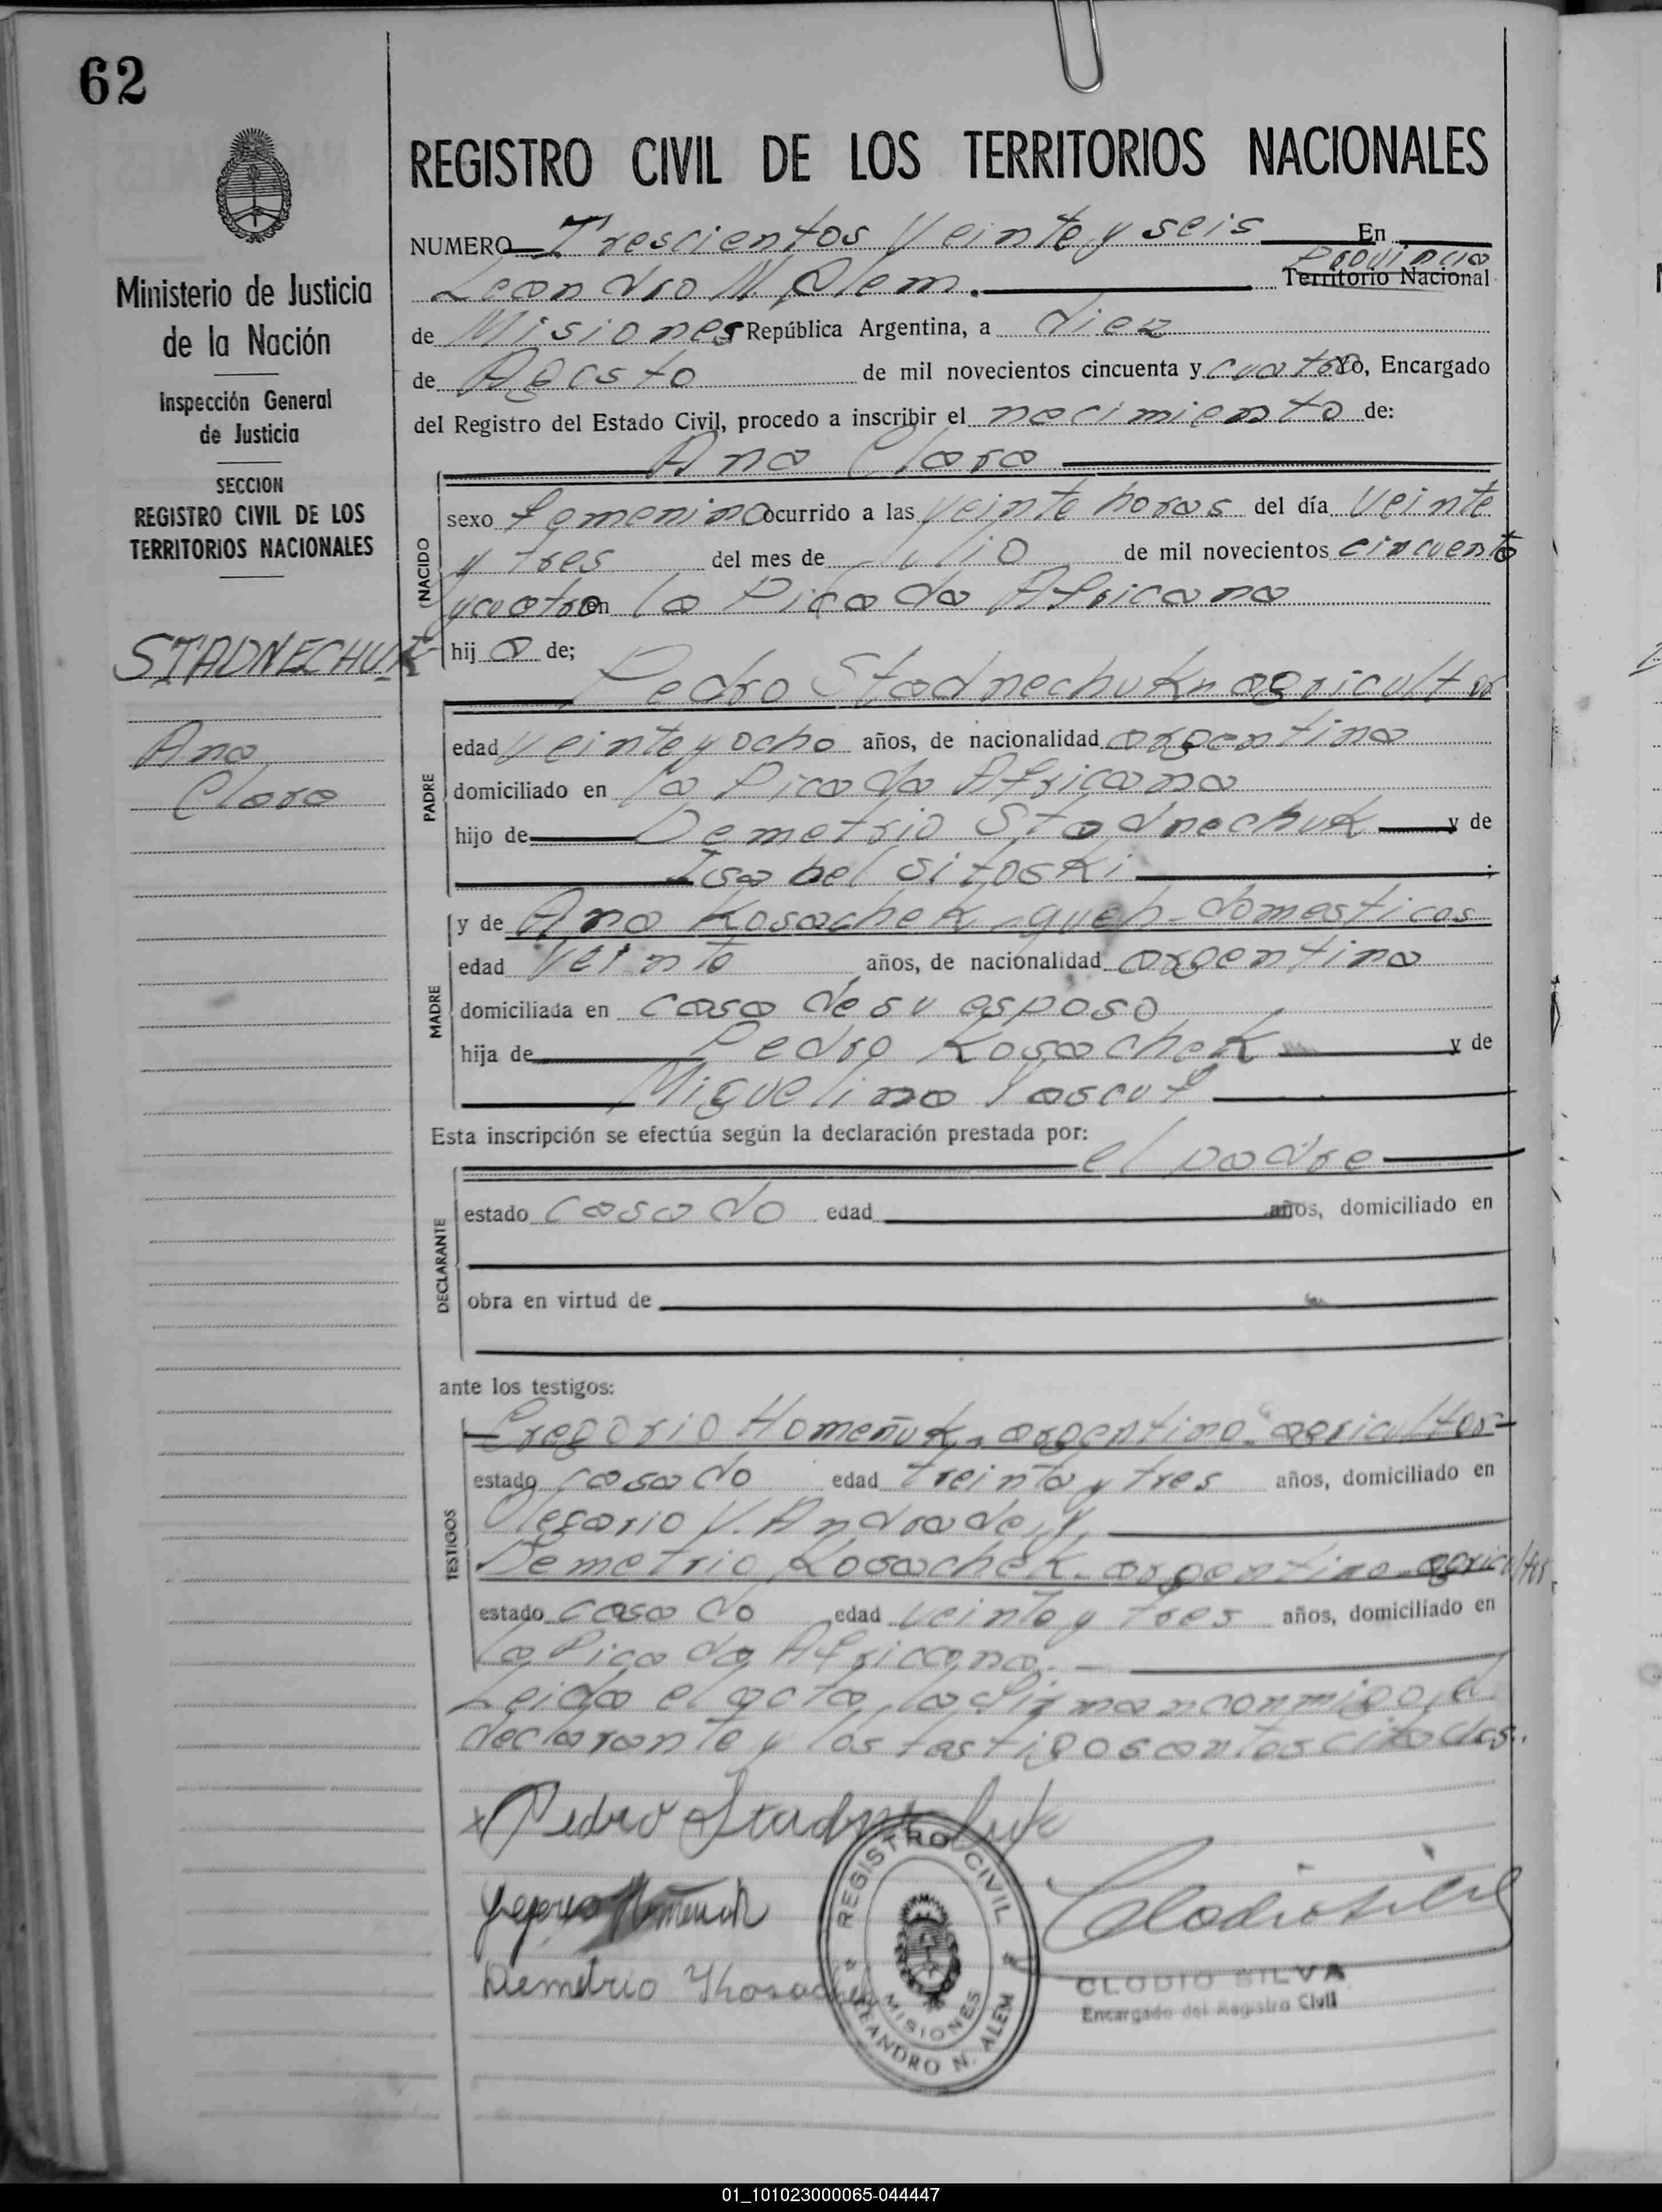 62
Ministerio de Justicia
de la Nación
Inspección General
de Justicia
SECCION
REGISTRO CIVIL DE LOS
TERRITORIOS NACIONALES
STADNECHUK
Ana
Clara
REGISTRO CIVIL DE LOS TERRITORIOS NACIONALES
NUMERO Trescientos Veinte y seis En
Leandro N. Alem. Provincia
Territorio Nacional
de Misiones República Argentina, a diez
de Agosto de mil novecientos cincuenta y cuatro Yo, Encargado
del Registro del Estado Civil, procedo a inscribir el nacimiento de:
Ana Clara
(NACIDO
sexo femenino ocurrido a las veinte horas del día veinte
y tres del mes de Julio de mil novecientos cincuenta
y cuatro en la Picada Africana
hij a de;
Pedro Stadnechuk agricultor
PADRE
edad veinte y ocho años, de nacionalidad argentina
domiciliado en la Picada Africana
hijo de Demetrio Stadnechuk y de
Isabel Sitoski ;
MADRE
y de Ana Kosachek queh. domesticos
edad veinte años, de nacionalidad argentina
domiciliada en casa de su esposo
hija de Pedro Kosachek y de
Miguelina
Esta inscripción se efectúa según la declaración prestada por:
el padre
DECLARANTE
estado casado edad años, domiciliado en
obra en virtud de
ante los testigos:
TESTIGOS
Gregorio Homeñuk, argentino agricultor
estado casado edad treinta y tres años, domiciliado en
Olegario V. Andrade,
Demetrio Kosachek argentino agricultor
estado casado edad veinte y tres años, domiciliado en
la Picada Africana. -
Leida el acta, la firman conmigo, el
declarante y los testigos antes citados.
x Pedro Stadnechuk
Demetrio Khosachek
REGISTRO CIVIL
MISIONES
LEANDRO N. ALEM
Clodio Silva
CLODIO SILVA
Encargado del Registro Civil
01_101023000065-044447